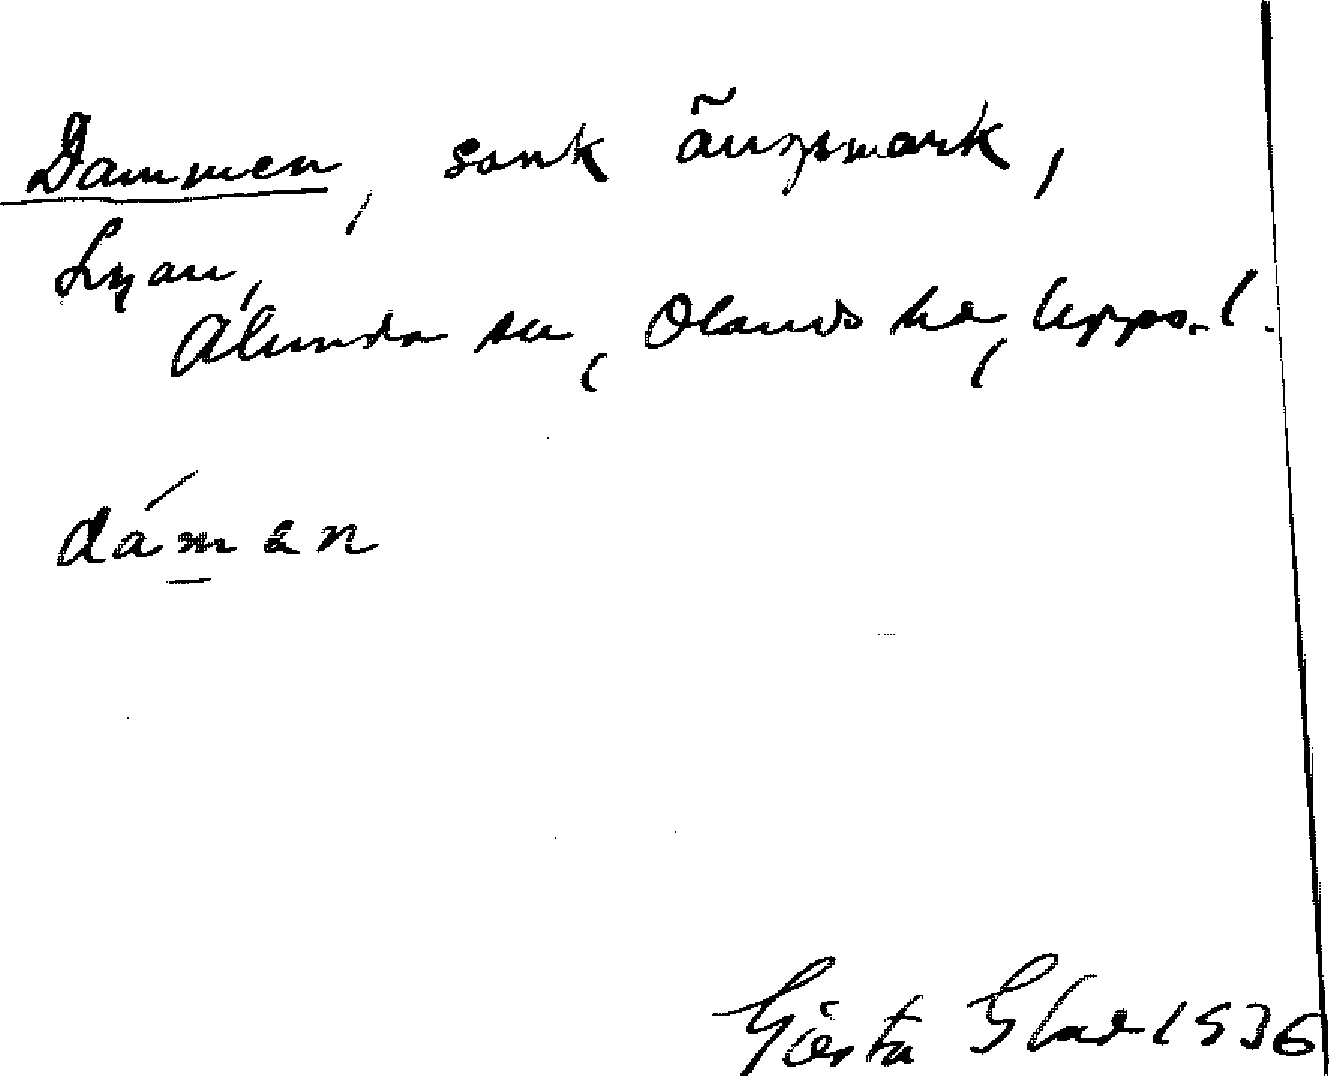 Dammen, sank ängsmark,
Lyan,
Alunda sn, Olands hd, Upps. l.
dámen
Gösta Glad 1936